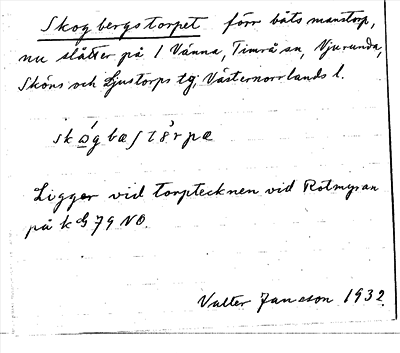 Skogbergstorpet förr båtsmanstorp,
nu slåtter på 1 Vänna, Timrå sn, Njurunda,
Sköns och Ljustorps tg, Västernorrlands l.
Ligger vid torptecknen vid Rotmyran
på k G 79 NO.
Valter Jansson 1932.